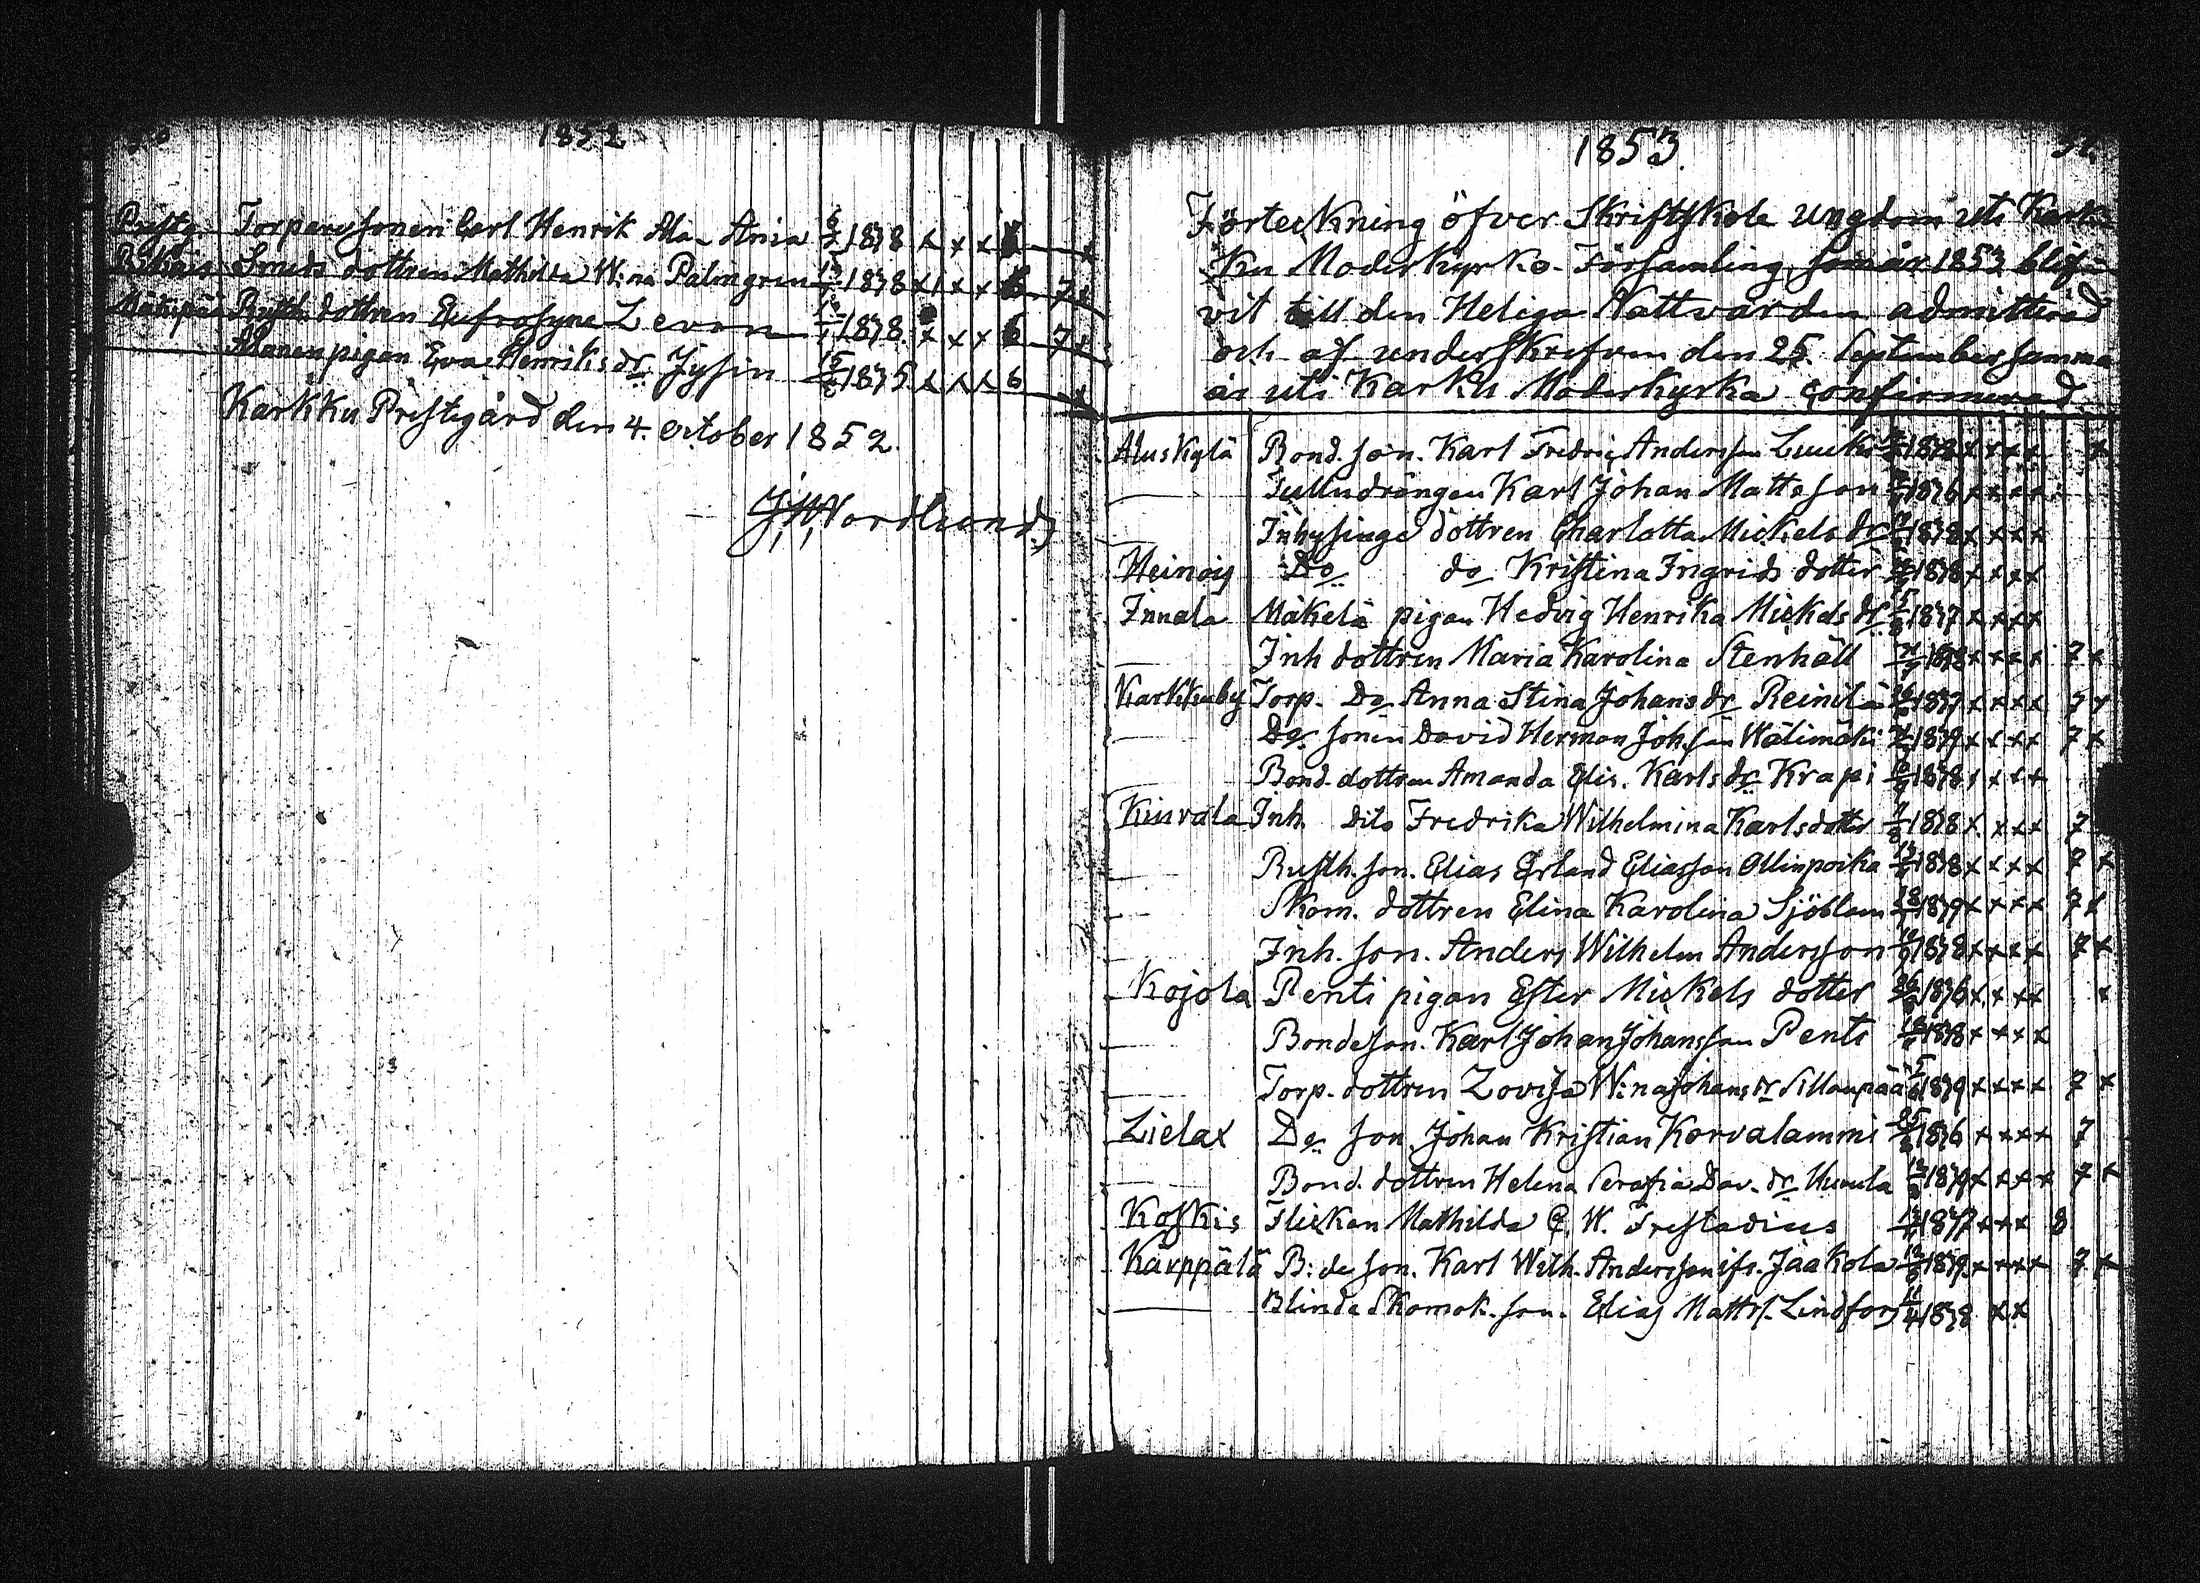 1852
Torpare sonen Carl Henrik Ala-Ania 1838 x x x 6 x
Smeds dottren Mathilda W:na Palmgren 1838 x x x x 6 7 x
Rusth. dottren Eufrosyne Levon 1838 x x x 6 7 x
pigan Eva Henriks dr Jysin 1835 x x x 6 x
Karkku Prestegård den 4. october 1852.
Nordlund
1853.
Förteckning öfver Skriftskole Ungdom uti Kark-
ku Moderkyrko-Församling, som år 1853 blif-
vit till den Heliga Nattvarden admitterad
och af underskrefven den 25. September samma
år uti Karku Moderkyrka confirmerad.
Aluskylä Bond. son. Karl Fredric Andersson x x x x x
Karl Johan Mattsson 1836 x x x x
Inhysinge dottren Charlotta Mickels dr 1838 x x x x
Heinoig Do do Kristina Ingrids dotter 1838 x x x x
Innala Mäkelä pigan Hedvig Henrika Mickels dr 1837 x x x x
Inh dottren Maria Karolina Stenhäll 1838 x x x x 7 x
Karkkuby Torp. Do Anna Stina Johans dr Reinilä 1837 x x x x 7 x
Do sonen David Herman Joh.son Wälimäki 1839 x x x x 7 x
Bond. dottren Amanda Elis. Karls dr Krapi 1838 x x x x
Kiurala Inh. Dito Fredrika Wilhelmina Karlsdotter 1838 x x x x 7
Rusth. son. Elias Erland Eliasson Ollinpoika 1838 x x x x 7 x
Skom. dottren Elina Karolina Sjöblom 1839 x x x x 7 x
Inh. son. Anders Wilhelm Andersson 1838 x x x x 7 x
Kojola Penti pigan Ester Mickels dotter 1836 x x x x x
Bondeson. Karl Johan Johansson Penti 1838 x x x x
Torp. dottren Lovisa W:na Johans dr Sillanpää 1839 x x x x 7 x
Lielax Do son Johan Kristian Korvalammi 1836 x x x x 7
Bond. dottren Helena Serafia Dav. dr 1839 x x x x 7 x
Koskis Flickan Mathilda C. W. Frestadius 1837 x x x 8
Kärppälä B:de son. Karl Wilh. Andersson ifr. Jaakola 1839 x x x x 7 x
Blinde Skomak. son. Elias Matts. Lindfors 1838 x x